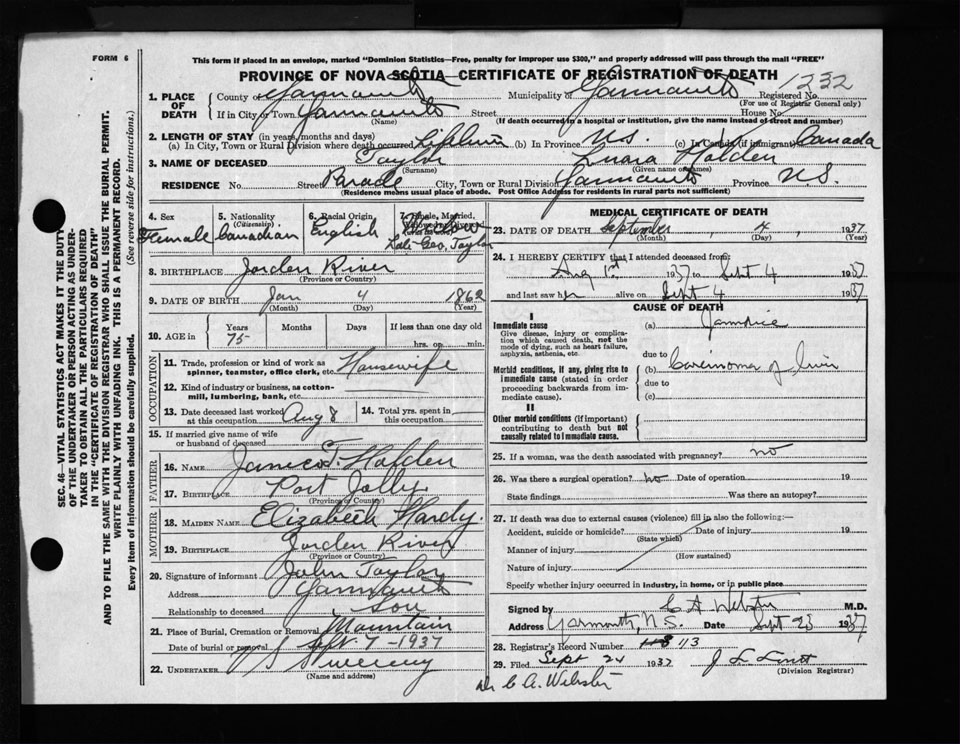 FORM 6
This form if placed in an envelope, marked "Dominion Statistics—Free, penalty for improper use $300," and properly addressed will pass through the mail "FREE"
PROVINCE OF NOVA SCOTIA—CERTIFICATE OF REGISTRATION OF DEATH
1232
1. PLACE OF DEATH
County of Yarmouth Municipality of Yarmouth Registered No.
(For use of Registrar General only)
If in City or Town Yarmouth Street House No.
(Name) (If death occurred in a hospital or institution, give the name instead of street and number)
2. LENGTH OF STAY (in years, months and days)
(a) In City, Town or Rural Division where death occurred Lifetime (b) In Province N.S. (c) In Canada (if immigrant) Canada
3. NAME OF DECEASED Taylor Holden
(Surname) (Given name or names)
RESIDENCE No. Street Parade City, Town or Rural Division Yarmouth Province N.S.
(Residence means usual place of abode. Post Office Address for residents in rural parts not sufficient)
4. Sex Female
5. Nationality (Citizenship) Canadian
6. Racial Origin English
7. Single, Married, Widowed or Divorced Widow
Late Geo. Taylor
8. BIRTHPLACE Jorden River
(Province or Country)
9. DATE OF BIRTH Jan 4 1862
(Month) (Day) (Year)
10. AGE in Years Months Days If less than one day old
75 hrs. or min.
OCCUPATION
11. Trade, profession or kind of work as spinner, teamster, office clerk, etc. Housewife
12. Kind of industry or business, as cotton-mill, lumbering, bank, etc.
13. Date deceased last worked at this occupation Aug 8
14. Total yrs. spent in this occupation
15. If married give name of wife or husband of deceased
FATHER
16. NAME James T. Holden
17. BIRTHPLACE Port Jolly
(Province or Country)
MOTHER
18. MAIDEN NAME Elizabeth Hardy.
19. BIRTHPLACE Jorden River
(Province or Country)
20. Signature of informant John Taylor
Address Yarmouth
Relationship to deceased Son
21. Place of Burial, Cremation or Removal Mountain
Date of burial or removal Sept. 7-1937
22. UNDERTAKER Sweeney
(Name and address)
MEDICAL CERTIFICATE OF DEATH
23. DATE OF DEATH September, 4, 1937
(Month) (Day) (Year)
24. I HEREBY CERTIFY that I attended deceased from:
Aug 1st 1937 to Sept 4 1937
and last saw her alive on Sept 4 1937
CAUSE OF DEATH
I
Immediate cause
Give disease, injury or complication which caused death, not the mode of dying, such as heart failure, asphyxia, asthenia, etc.
(a) Jaundice
due to
Morbid conditions, if any, giving rise to immediate cause (stated in order proceeding backwards from immediate cause).
(b) Carcinoma of liver
due to
(c)
II
Other morbid conditions (if important) contributing to death but not causally related to immediate cause.
25. If a woman, was the death associated with pregnancy? no
26. Was there a surgical operation? no Date of operation 19
State findings Was there an autopsy?
27. If death was due to external causes (violence) fill in also the following:—
Accident, suicide or homicide? Date of injury 19
(State which)
Manner of injury
(How sustained)
Nature of injury
Specify whether injury occurred in industry, in home, or in public place
Signed by C A Webster M.D.
Address Yarmouth, N.S. Date Sept 23 1937
28. Registrar's Record Number 113
29. Filed Sept 24 1937
(Division Registrar)
Dr C. A. Webster
SEC. 46—VITAL STATISTICS ACT MAKES IT THE DUTY
OF THE UNDERTAKER OR PERSON ACTING AS UNDERTAKER
TO OBTAIN ALL THE PARTICULARS REQUIRED
IN THE "CERTIFICATE OF REGISTRATION OF DEATH"
AND TO FILE THE SAME WITH THE DIVISION REGISTRAR WHO SHALL ISSUE THE BURIAL PERMIT.
WRITE PLAINLY WITH UNFADING INK. THIS IS A PERMANENT RECORD.
Every item of information should be carefully supplied. (See reverse side for instructions.)